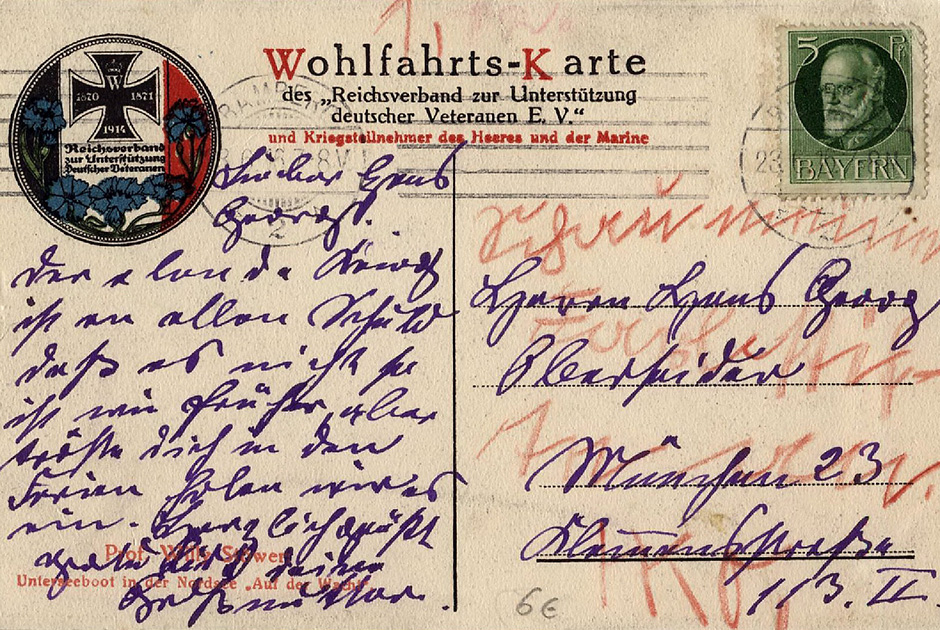 Wohlfahrts-Karte
des „Reichsverband zur Unterstützung
deutscher Veteranen E. V.“
und Kriegsteilnehmer des Heeres und der Marine
W
1870 1871
1914
Reichsverband
zur Unterstützung
Deutscher Veteranen
5 Pf
BAYERN
Lieber Hans
Georg.
Der elende Krieg
ist an allem Schuld
daß es nicht so
ist wie früher, aber
tröste dich in den
Ferien holen wir es
ein. Herzlich grüßt
deine
Großmutter.
Prof. Willy Stöwer
Unterseeboot in der Nordsee „Auf der Wacht“
Herrn Hans Georg
München 23
Klemensstraße
113. II.
6€